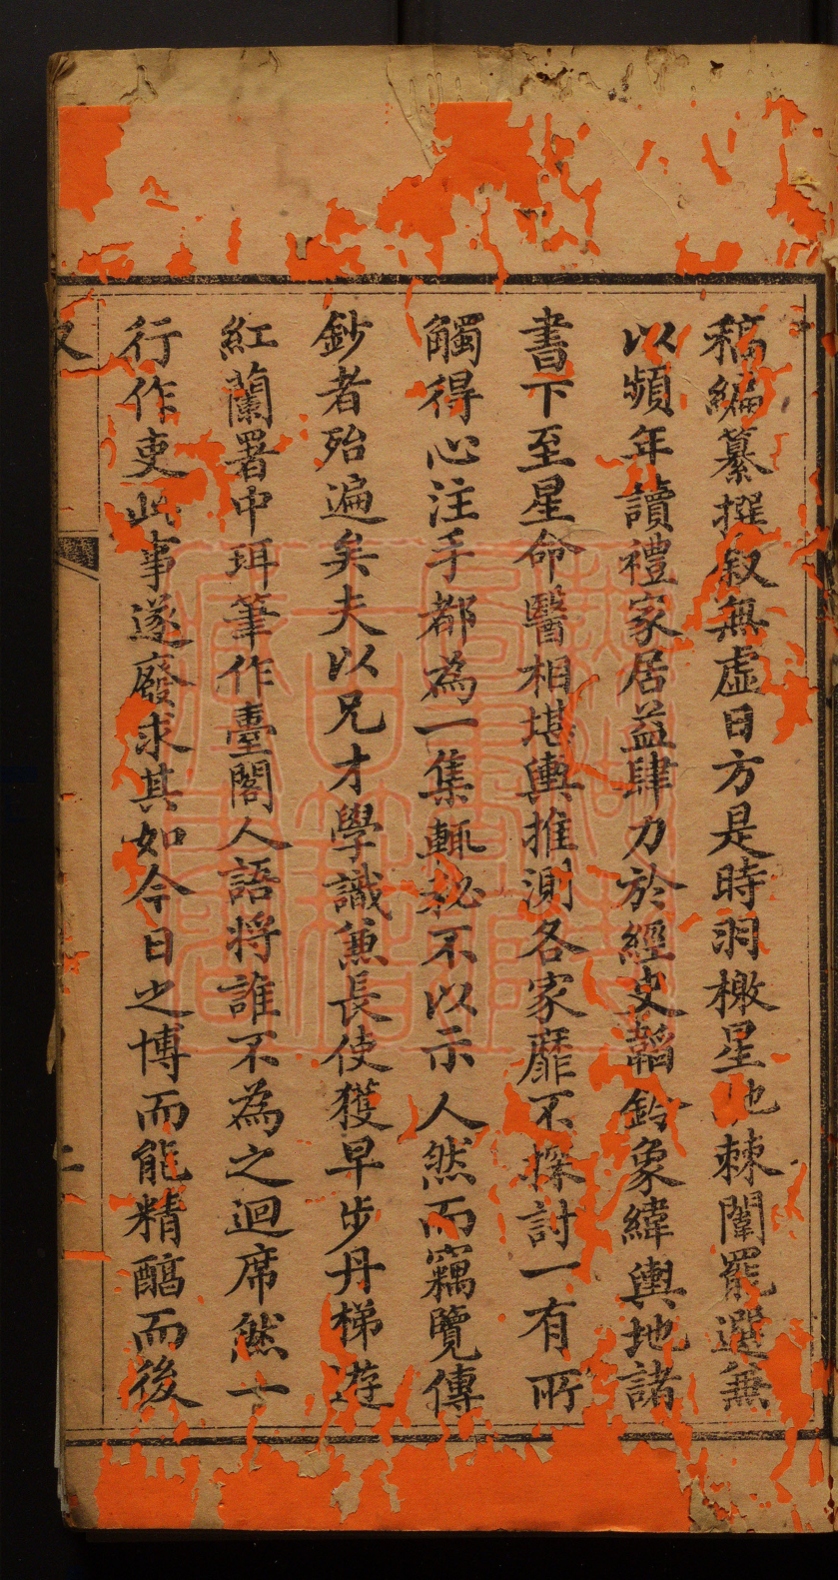 稿編纂撰叙無虛日方是時羽檄星馳棘闈罷選兼
以頻年讀禮家居益肆力於經史韜鈐象緯輿地諸
書下至星命醫相堪輿推測各家靡不探討一有所
觸得心注手都為一集輒秘不以示人然而竊覽傳
鈔者殆遍矣夫以兄才學識兼長使獲早步丹梯遊
紅蘭署中珥筆作臺閣人語將誰不為之迴席然一
行作吏此事遂廢求其如今日之博而能精醕而後
叙
二